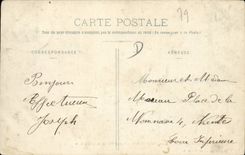 CARTE POSTALE
CORRESPONDANCE
ADRESSE
79
D
Bonjour
Affectueux
Joseph
Monsieur et Mme
Place de la
Monnaie 4, Nantes
Loire Inférieure